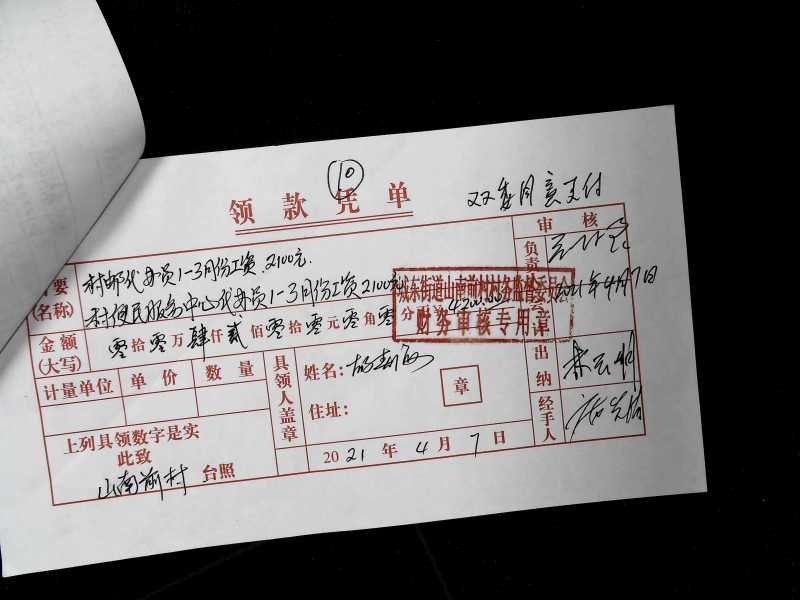 10
领款凭单
双委同意支付
审核
摘要
(名称)
村邮代办员1-3月份工资.2100元.
村便民服务中心代办员1-3月份工资2100元
负责
2021年4月7日
城东街道山南前村村务监督委员会
财务审核专用章
金额
(大写)
零拾零万肆仟贰佰零拾零元零角零分
4200.00
计量单位 单价 数量
具领人盖章
姓名:
住址:
章
出纳
经手人
上列具领数字是实
此致
山南前村 台照
2021年4月7日